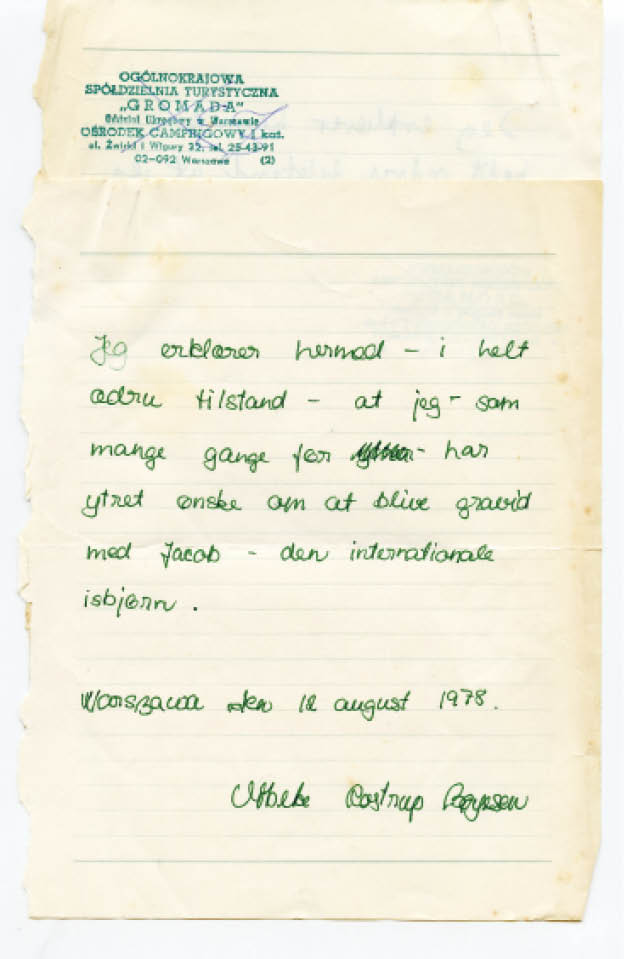 OGÓLNOKRAJOWA
SPÓŁDZIELNIA TURYSTYCZNA
„GROMADA"
Oddział Okręgowy w Warszawie
OŚRODEK CAMPINGOWY I kat.
ul. Żwirki i Wigury 32, tel. 25-43-91
02-092 Warszawa (2)
Jeg erklærer hermed – i helt
ædru tilstand – at jeg – som
mange gange før - har
ytret ønske om at blive gravid
med Jacob – den internationale
isbjørn.
Warszawa den 12 august 1978.
Vibeke Rostrup Bøyesen